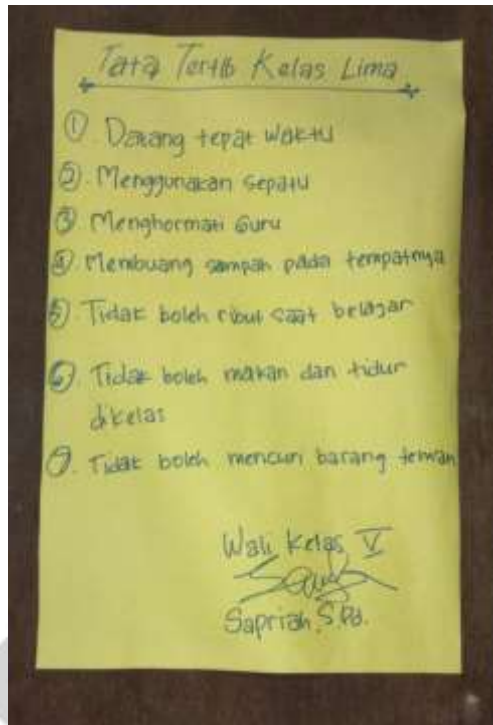 Tata Tertib Kelas Lima
① Datang tepat waktu
②. Menggunakan sepatu
③ Menghormati Guru
④ Membuang sampah pada tempatnya
⑤ Tidak boleh ribut saat belajar
⑥. Tidak boleh makan dan tidur
dikelas
⑦. Tidak boleh mencuri barang teman
Wali Kelas V
Sapriah, S.Pd.